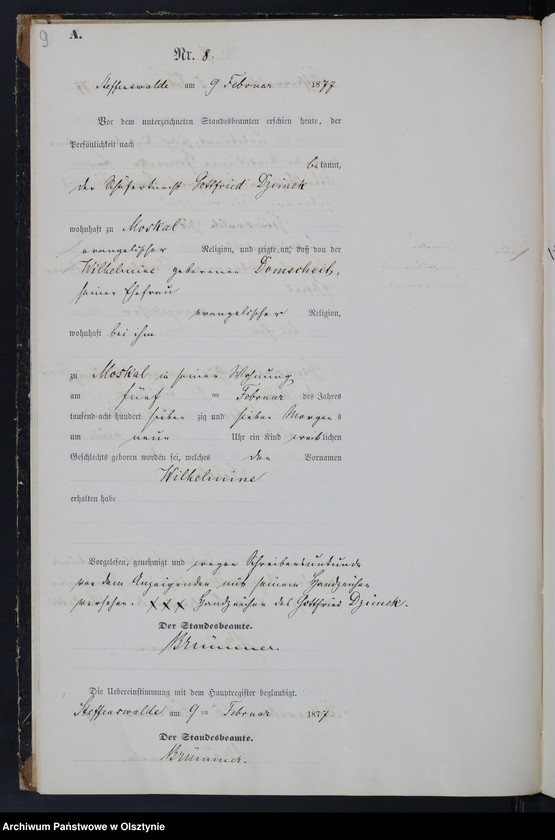 9
A.
Nr. 8.
Steffenswalde am 9 Februar 1877
Vor dem unterzeichneten Standesbeamten erschien heute, der
Persönlichkeit nach
bekannt,
der Schäferknecht Gottfried Dzimek
wohnhaft zu Moskal
evangelischer Religion, und zeigte an, daß von der
Wilhelmine geborenen Domscheit,
seiner Ehefrau
evangelischer Religion,
wohnhaft bei ihm
zu Moskal in seiner Wohnung
am fünf = Februar des Jahres
tausend acht hundert sieben zig und sieben Morgens
um neun Uhr ein Kind weiblichen
Geschlechts geboren worden sei, welches den Vornamen
Wilhelmine
erhalten habe
Vorgelesen, genehmigt und wegen Schreibensunkunde
von dem Anzeigenden mit seinem Handzeichen
versehen. XXX Handzeichen des Gottfried Dzimek.
Der Standesbeamte.
Brümmer.
Die Uebereinstimmung mit dem Hauptregister beglaubigt.
Steffenswalde am 9 = Februar 1877
Der Standesbeamte.
Brümmer.
Archiwum Państwowe w Olsztynie